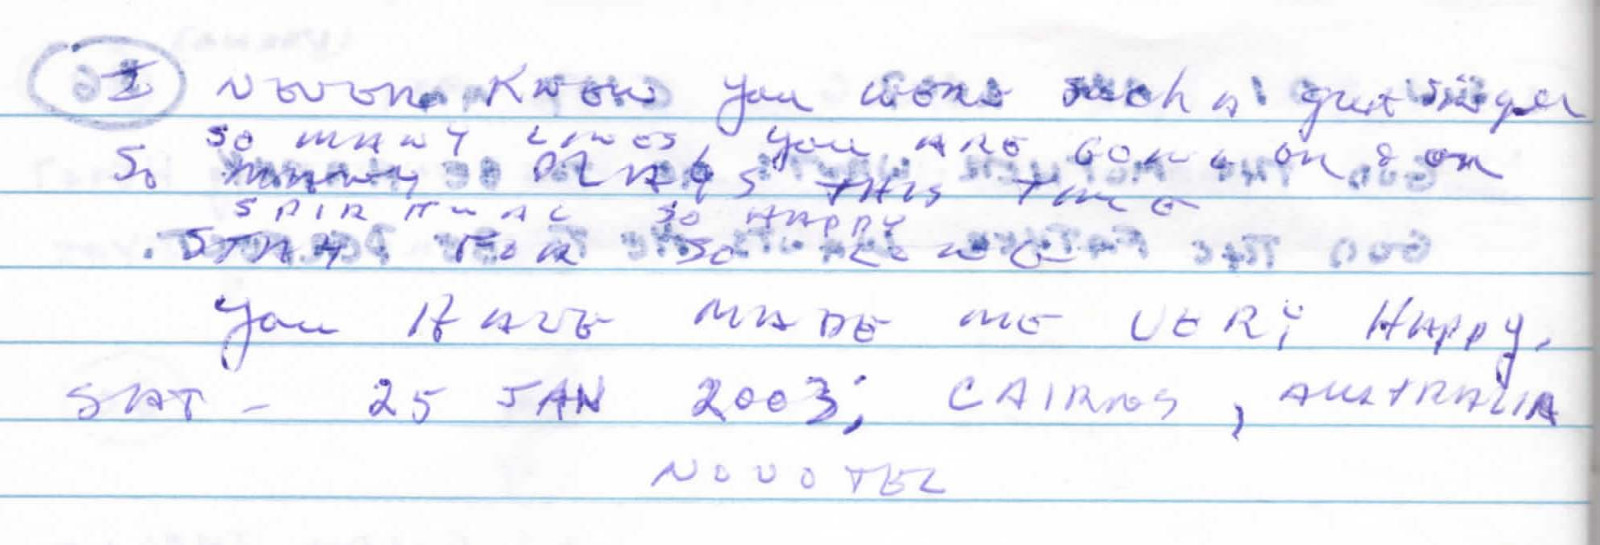 I NEVER KNEW you WERE such a great singer
SO MANY LINES, you ARE GOING ON & ON
So MANY PLAYS THIS TIME
SPIRITUAL SO HAPPY
STAY FOR SO LONG
you HAVE MADE ME VERY Happy.
SAT - 25 JAN 2003; CAIRNS, AUSTRALIA
NOVOTEL